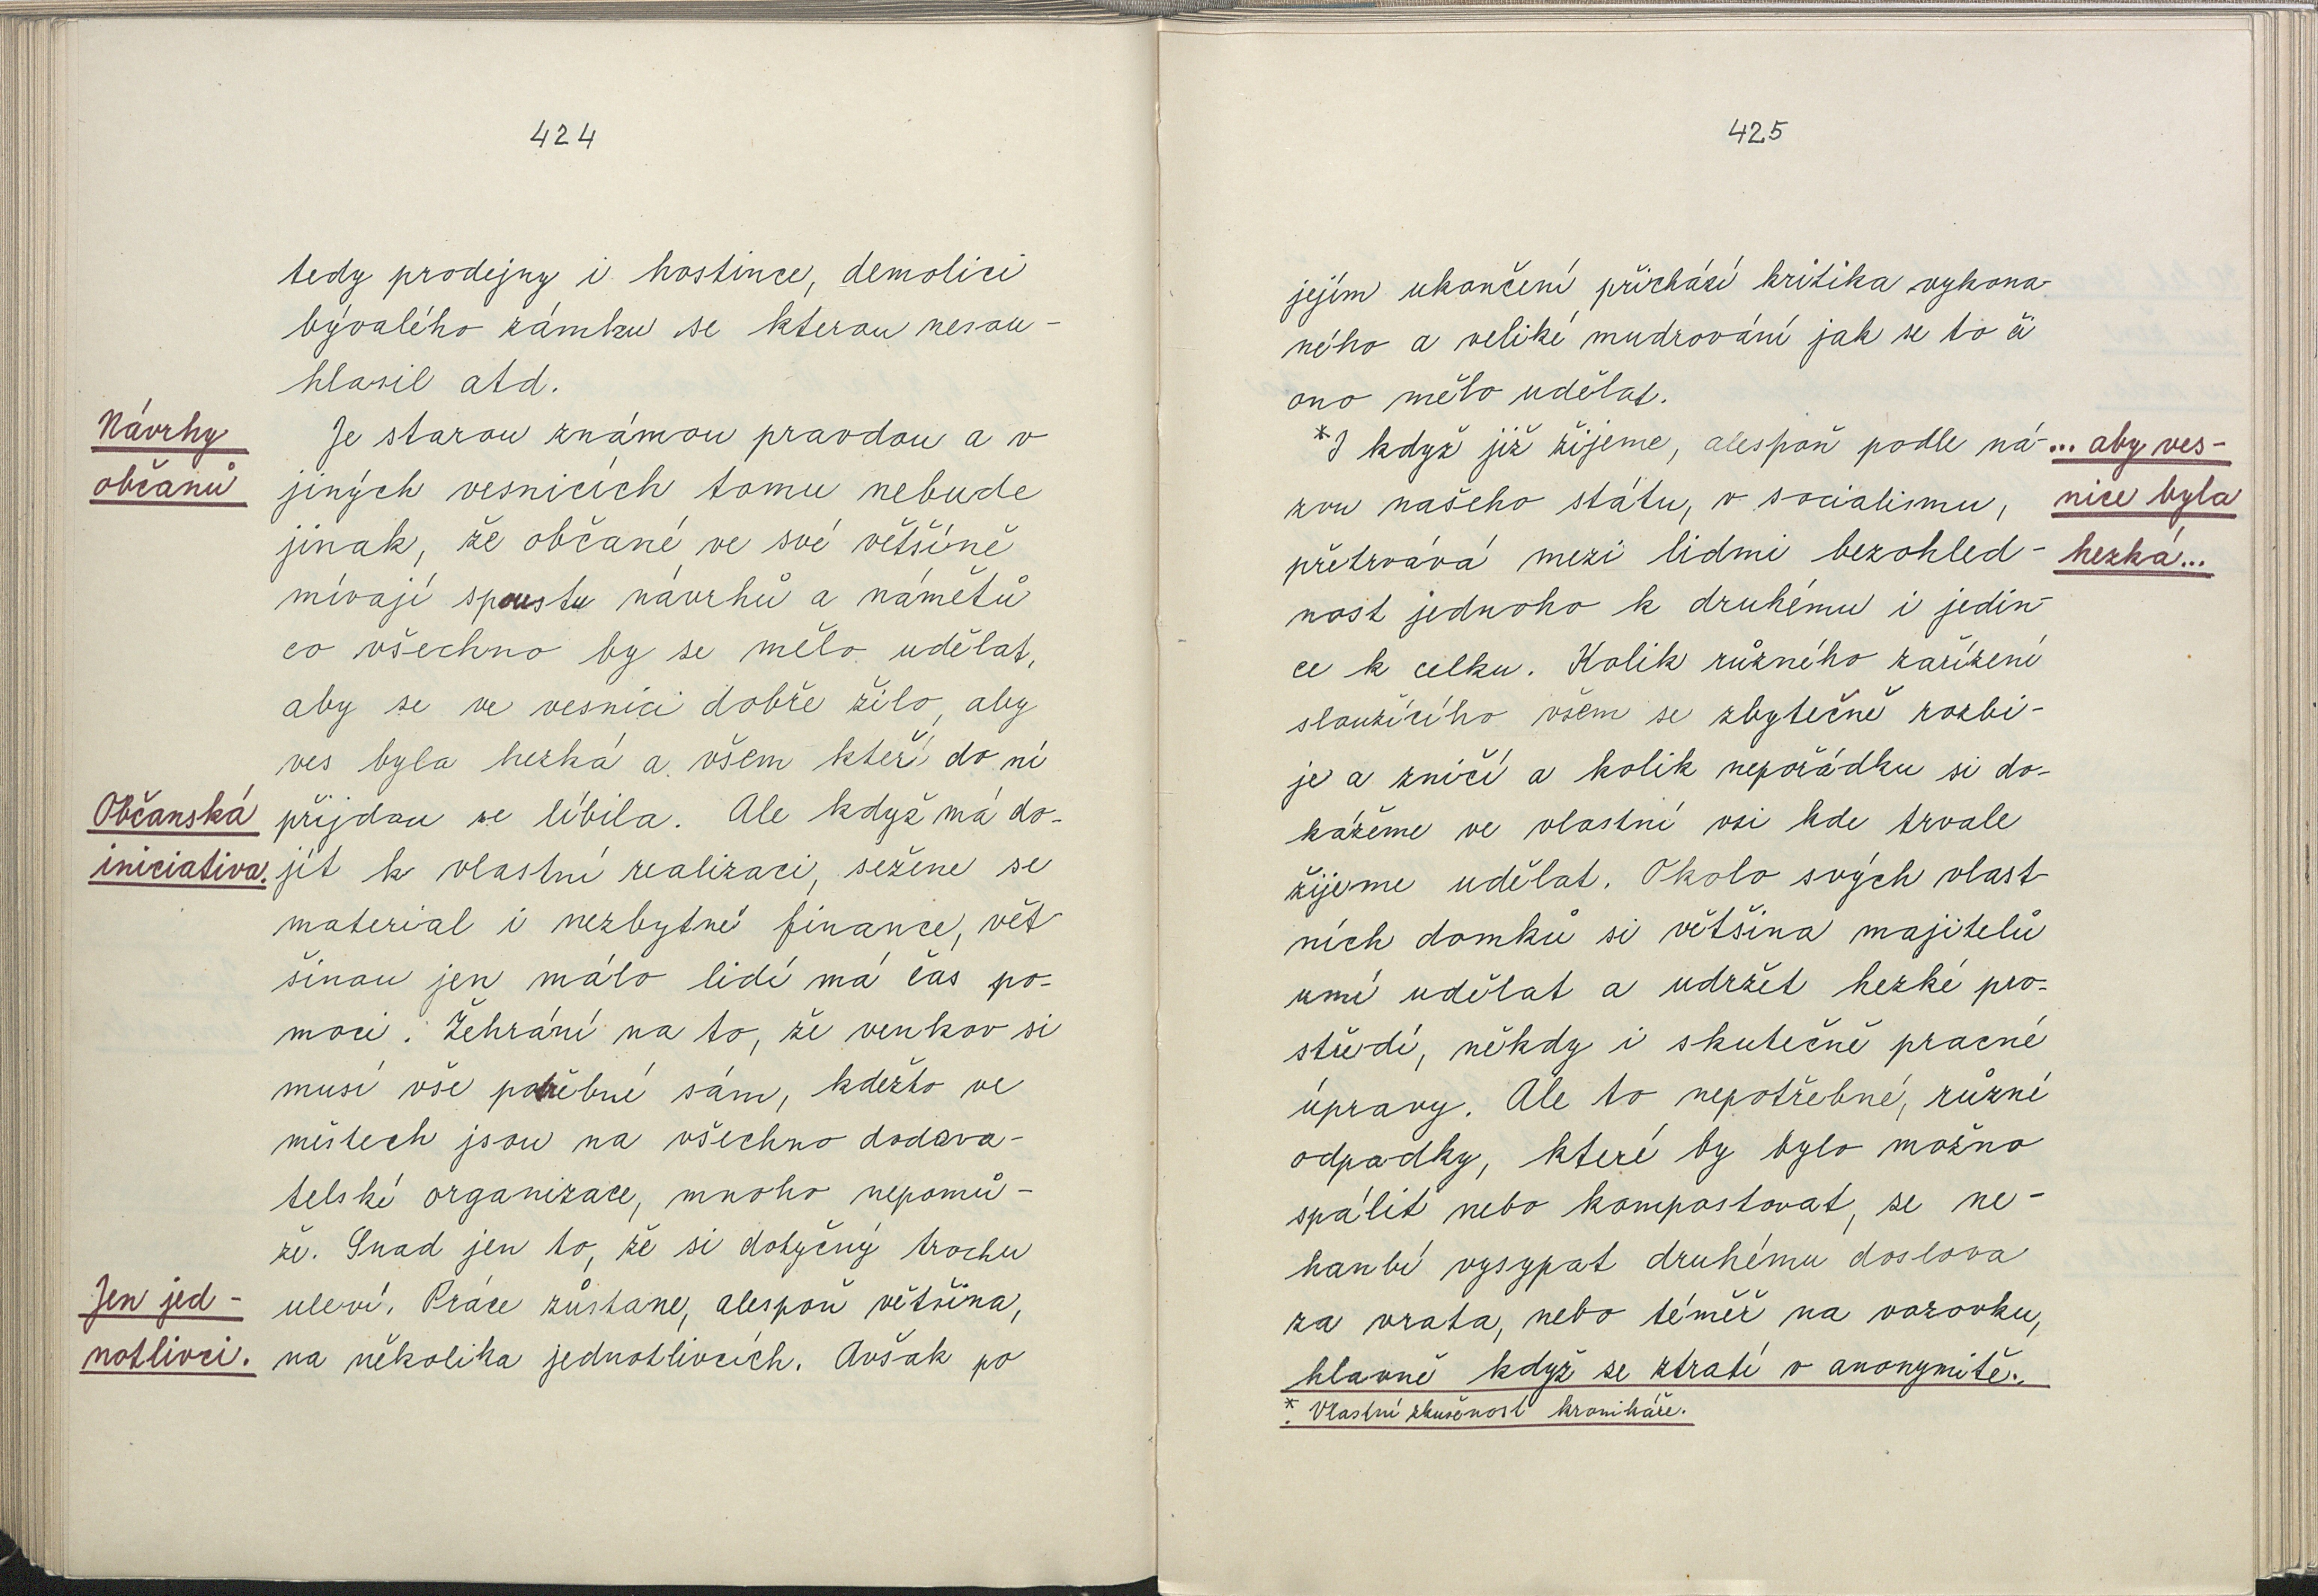 424
tedy prodejny i hostince, demolici
bývalého zámku se kterou nesou-
hlasil atd.
Návrhy
občanů
Je starou známou pravdou a v
jiných vesnicích tomu nebude
jinak, že občané ve své většíně
mívají spoustu návrhů a námětů
co všechno by se mělo udělat,
aby se ve vesnici dobře žilo, aby
ves byla hezká a všem kteří do ní
Občanská
iniciativa.
přijdou se líbila. Ale když má do-
jít k vlastní realizaci, sežene se
material i nezbytné finance, vět-
šinou jen málo lidí má čas po-
moci. Žehrání na to, že venkov si
musí vše potřebné sám, kdežto ve
městech jsou na všechno dodava-
telské organizace, mnoho nepomů-
že. Snad jen to, že si dotyčný trochu
Jen jed-
notlivci.
uleví. Práce zůstane, alespoň většina,
na několika jednotlivcích. Avšak po
425
jejím ukončení přichází kritika vykona-
ného a veliké mudrování jak se to či
ono mělo udělat.
*I když již žijeme, alespoň podle ná-
zvu našeho státu, v socialismu,
přetrvává mezi lidmi bezohled-
... aby ves-
nice byla
hezká...
nost jednoho k druhému i jedin-
ce k celku. Kolik různého zařízení
sloužícího všem se zbytečně rozbi-
je a zničí a kolik nepořádku si do-
kážeme ve vlastní vsi kde trvale
žijeme udělat. Okolo svých vlast-
ních domků si většina majitelů
umí udělat a udržet hezké pro-
středí, někdy i skutečně pracné
úpravy. Ale to nepotřebné, různé
odpadky, které by bylo možno
spálit nebo kompostovat, se ne-
hanbí vysypat druhému doslova
za vrata, nebo téměř na vozovku,
hlavně když se ztratí v anonymitě.
*. Vlastní zkušenost kronikáře.